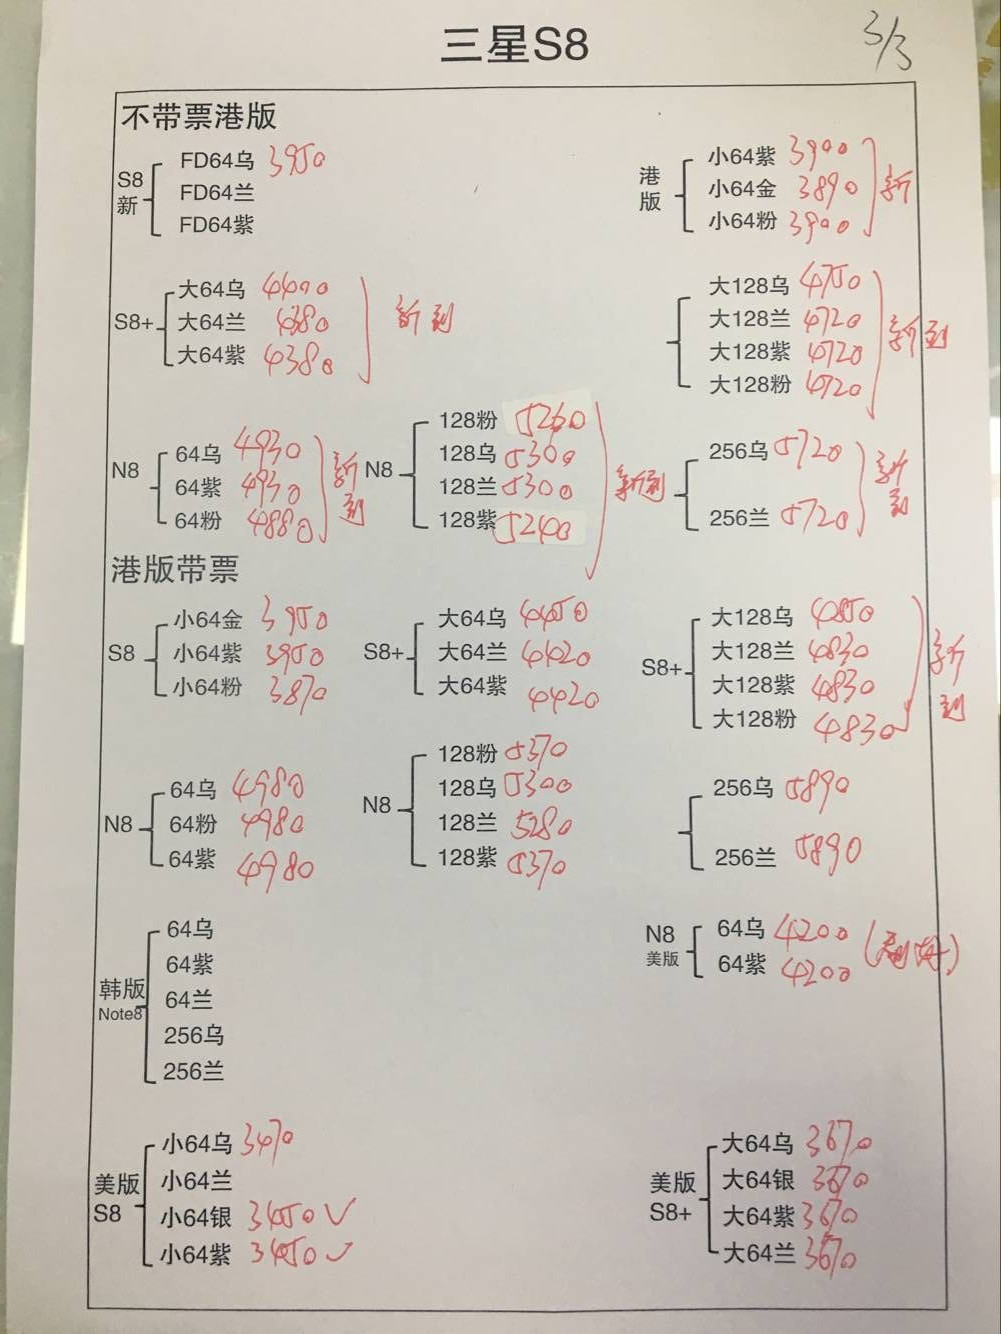 三星S8
3/3
不带票港版
S8
新
FD64乌 3950
FD64兰
FD64紫
港
版
小64紫 3900
小64金 3890
小64粉 3900
新
S8+
大64乌 4400
大64兰 4380
大64紫 4380
新到
大128乌 4750
大128兰 4720
大128紫 4720
大128粉 4720
新到
N8
64乌 4930
64紫 4930
64粉 4880
新到
N8
128粉 5260
128乌 5300
128兰 5300
128紫 5240
新到
256乌 5720
256兰 5720
新到
港版带票
S8
小64金 3950
小64紫 3950
小64粉 3870
S8+
大64乌 4450
大64兰 4420
大64紫 4420
S8+
大128乌 4850
大128兰 4830
大128紫 4830
大128粉 4830
新到
N8
64乌 4980
64粉 4980
64紫 4980
N8
128粉 5370
128乌 5300
128兰 5280
128紫 5370
256乌 5890
256兰 5890
韩版
Note8
64乌
64紫
64兰
256乌
256兰
N8
美版
64乌 4200
64紫 4200
美版
S8
小64乌 3470
小64兰
小64银 3450 ✓
小64紫 3450 ✓
美版
S8+
大64乌 3670
大64银 3670
大64紫 3670
大64兰 3670